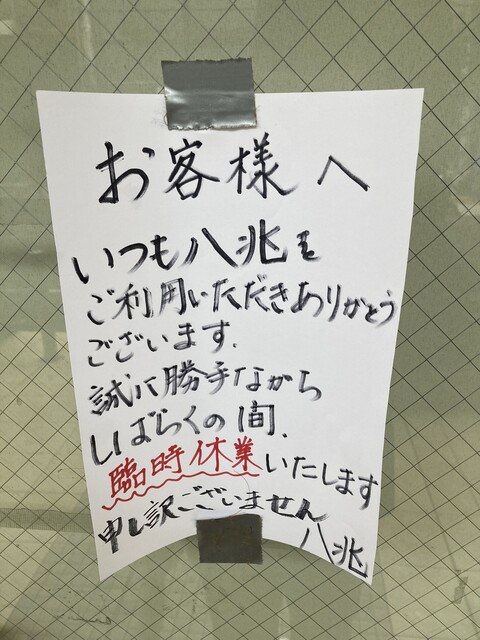 お客様へ
いつも八兆を
ご利用いただきありがとう
ございます.
誠に勝手ながら
しばらくの間.
臨時休業いたします
申し訳ございません
八兆